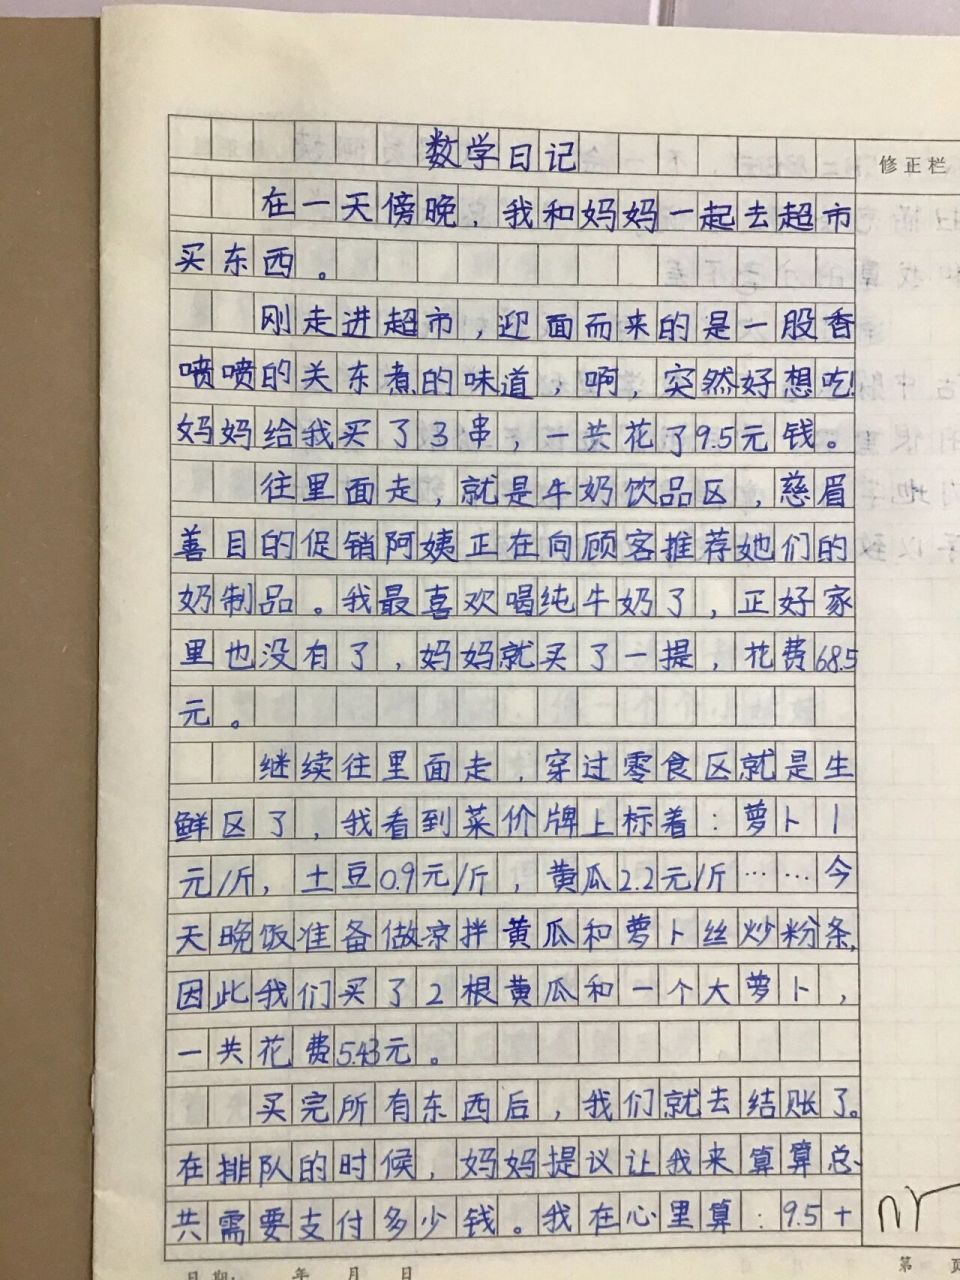 数学日记
修正栏
在一天傍晚，我和妈妈一起去超市
买东西。
刚走进超市，迎面而来的是一股香
喷喷的关东煮的味道，啊，突然好想吃！
妈妈给我买了3串，一共花了9.5元钱。
往里面走，就是牛奶饮品区，慈眉
善目的促销阿姨正在向顾客推荐她们的
奶制品。我最喜欢喝纯牛奶了，正好家
里也没有了，妈妈就买了一提，花费68.5
元。
继续往里面走，穿过零食区就是生
鲜区了，我看到菜价牌上标着：萝卜1
元/斤，土豆0.9元/斤，黄瓜2.2元/斤……今
天晚饭准备做凉拌黄瓜和萝卜丝炒粉条，
因此我们买了2根黄瓜和一个大萝卜，
一共花费5.43元。
买完所有东西后，我们就去结账了。
在排队的时候，妈妈提议让我来算算总
共需要支付多少钱。我在心里算：9.5+
日期： 年 月 日
第 页